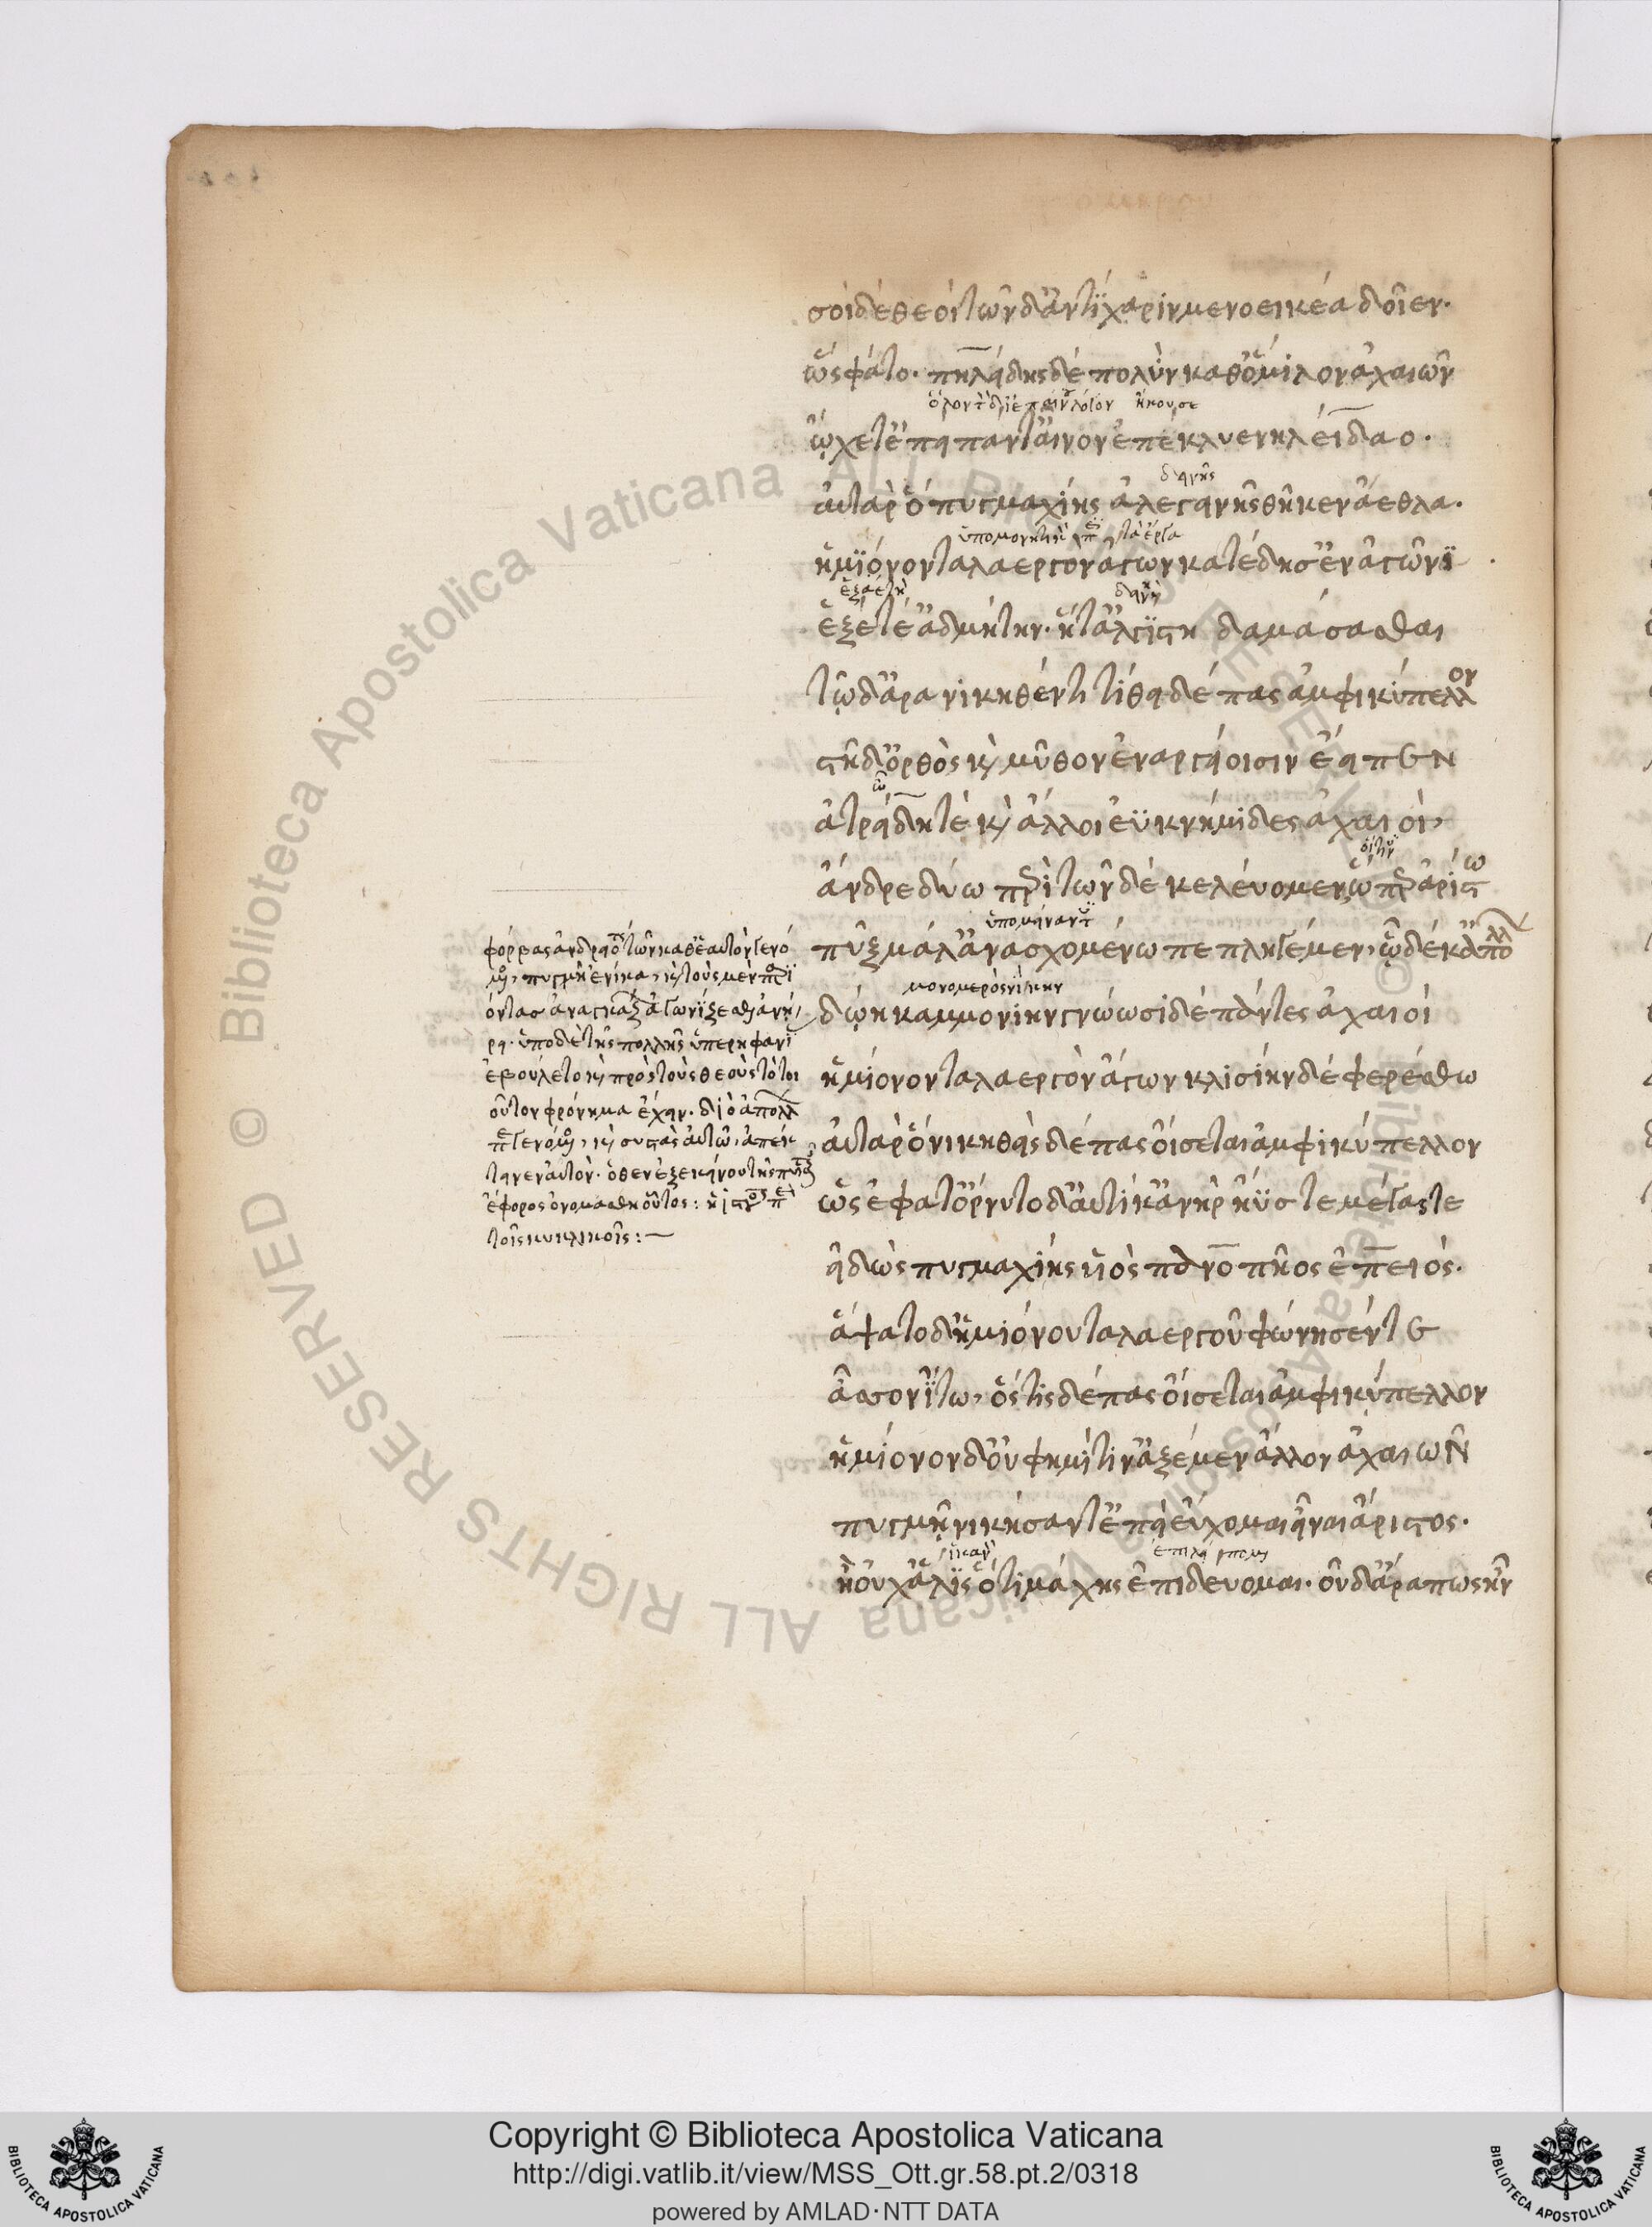 σοὶ δὲ θεοὶ τῶν δ' ἀντὶ χάριν μενοεικέα δοῖεν.
ὣς φάτο. πηλείδης δὲ πολὺν καθ' ὅμιλον ἀχαιῶν
ὤχετ' ἐπεὶ πάντ' αἶνον ἐπέκλυε νηλείδαο.
αὐτὰρ ὁ πυγμαχίης ἀλεγεινῆς θῆκεν ἄεθλα.
ἡμίονον ταλαεργὸν ἄγων κατέδησ' ἐν ἀγῶνι
ἑξέτε' ἀδμήτην. ἥτ' ἀλγίστη δαμάσασθαι
τῷ δ' ἄρα νικηθέντι τίθει δέπας ἀμφικύπελλον
στῆ δ' ὀρθὸς καὶ μῦθον ἐν ἀργείοισιν ἔειπεν
ἀτρείδη τὲ καὶ ἄλλοι ἐϋκνήμιδες ἀχαιοὶ,
ἄνδρε δύω περὶ τῶνδε κελεύομεν ὥπερ ἀρίστω
πὺξ μάλ' ἀνασχομένω πεπληγέμεν, ᾧ δέ κ' ἀπόλλων
δώῃ καμμονίην γνώωσι δὲ πάντες ἀχαιοὶ
ἡμίονον ταλαεργὸν ἄγων κλισίην δὲ φερέσθω
αὐτὰρ ὁ νικηθεὶς δέπας οἴσεται ἀμφικύπελλον
ὣς ἔφατ' ὄρνυτο δ' αὐτίκ' ἀνὴρ ἠΰς τε μέγας τε
εἰδὼς πυγμαχίης υἱὸς πανοπῆος ἐπειός.
ἅψατο δ' ἡμιόνου ταλαεργοῦ φώνησέν τε
ἆσσον ἴτω, ὅς τις δέπας οἴσεται ἀμφικύπελλον
ἡμίονον δ' οὔ φημί τιν' ἀξέμεν ἄλλον ἀχαιῶν
πυγμῇ νικήσαντ' ἐπεὶ εὔχομαι εἶναι ἄριστος.
ἦ οὐχ ἅλις ὅτι μάχης ἐπιδεύομαι. οὐδ' ἄρα πως ἦν
φόρβας ἀνδρειότατος τῶν καθ' ἑαυτὸν γενό
μενος, πυγμὴν ἐνίκα, καὶ τοὺς μὲν παρι
όντας ἀναγκάζων ἀγωνίζεσθαι ἀνῄ
ρει. ὑπὸ δὲ τῆς πολλῆς ὑπερηφανί
ἐβούλετο καὶ πρὸς τοὺς θεοὺς τὸ τοι
οῦτον φρόνημα ἔχειν. διὸ ἀπόλλων
παραγενόμενος, καὶ συστὰς αὐτῷ, ἀπέκ
τεινεν αὐτὸν. ὅθεν ἐξ ἐκείνου τῆς πυκτικῆς
ἔφορος ὀνομάσθη οὗτος: ἡ ἱστορία παρὰ
τοῖς κυκλικοῖς:
Copyright © Biblioteca Apostolica Vaticana
http://digi.vatlib.it/view/MSS_Ott.gr.58.pt.2/0318
powered by AMLAD·NTT DATA